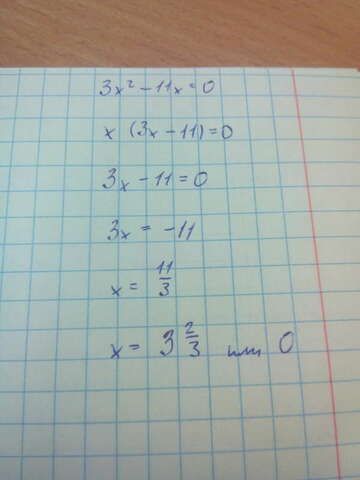 3x² - 11x = 0
x (3x - 11) = 0
3x - 11 = 0
3x = -11
x = 11/3
x = 3 2/3 или 0